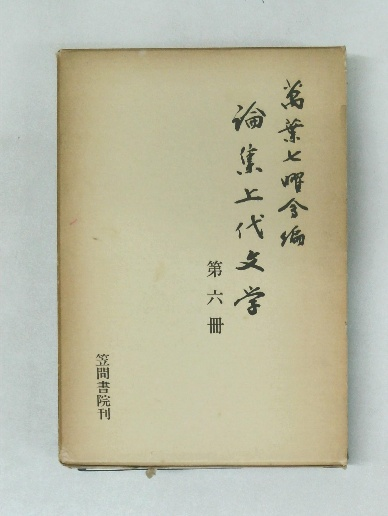 萬葉七曜会編
論集上代文学
第六冊
笠間書院刊